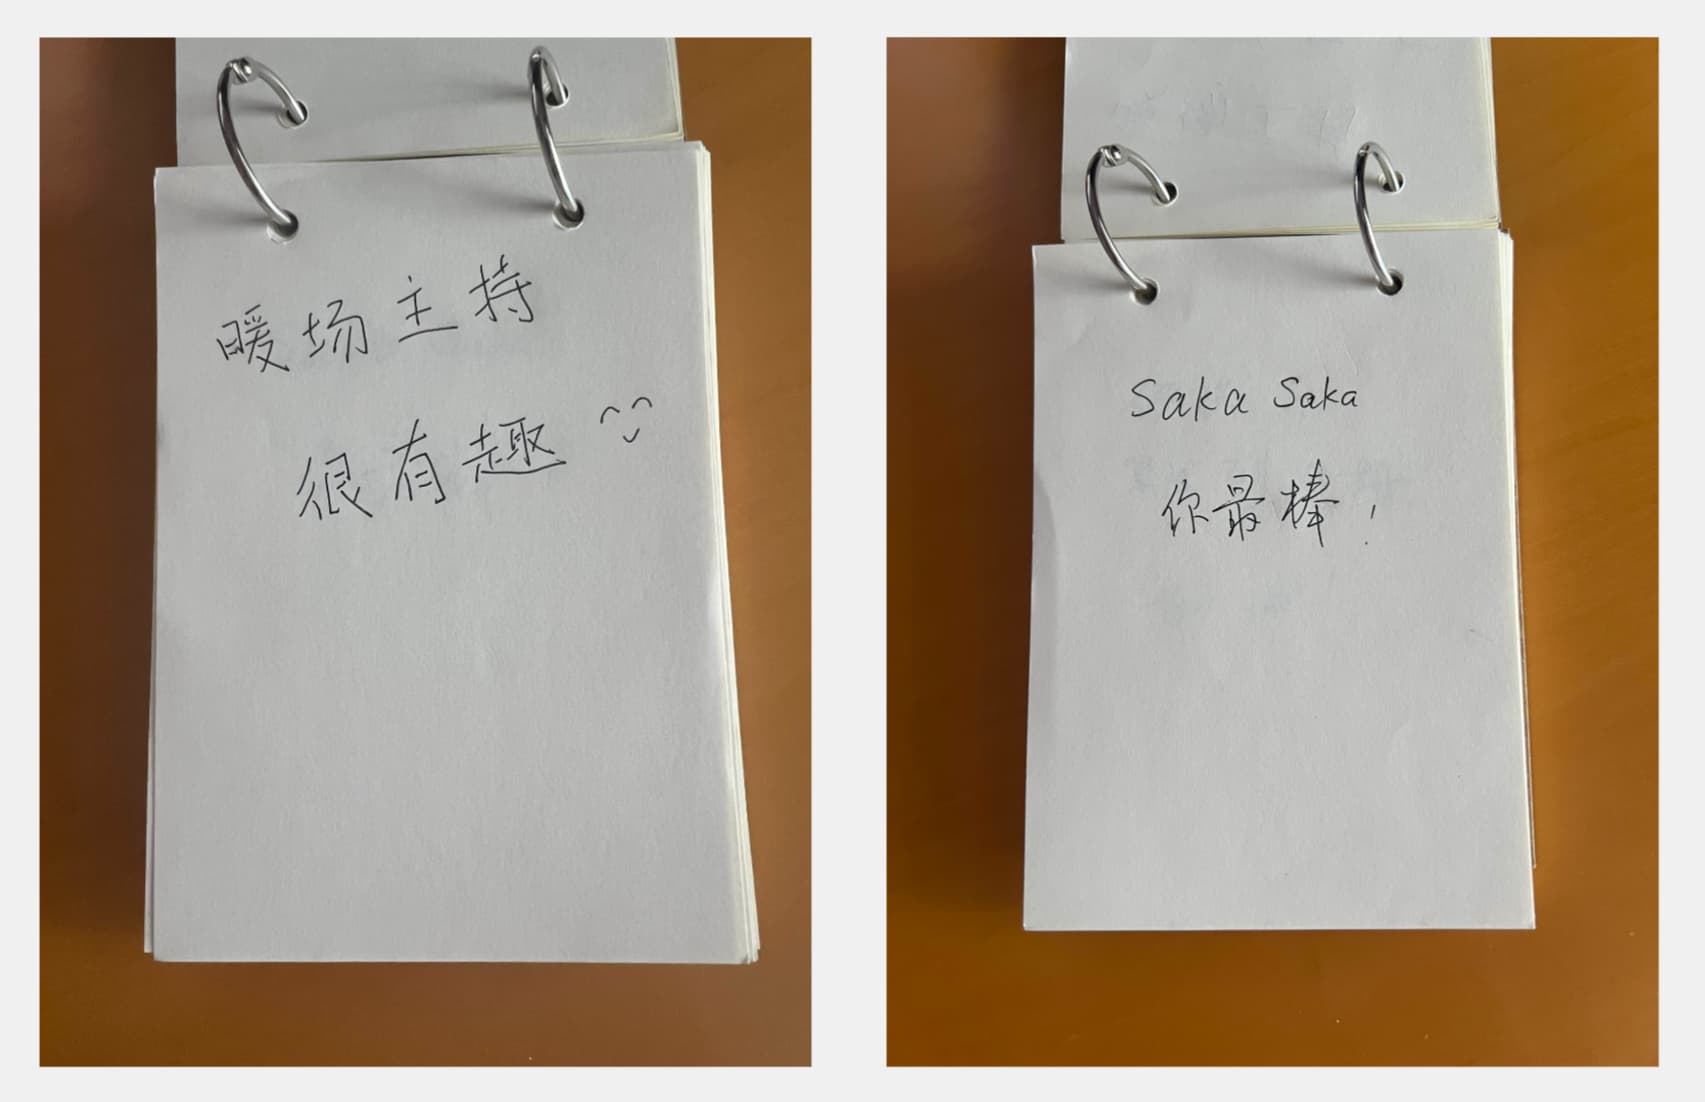 暖场主持
很有趣
Saka Saka
你最棒!